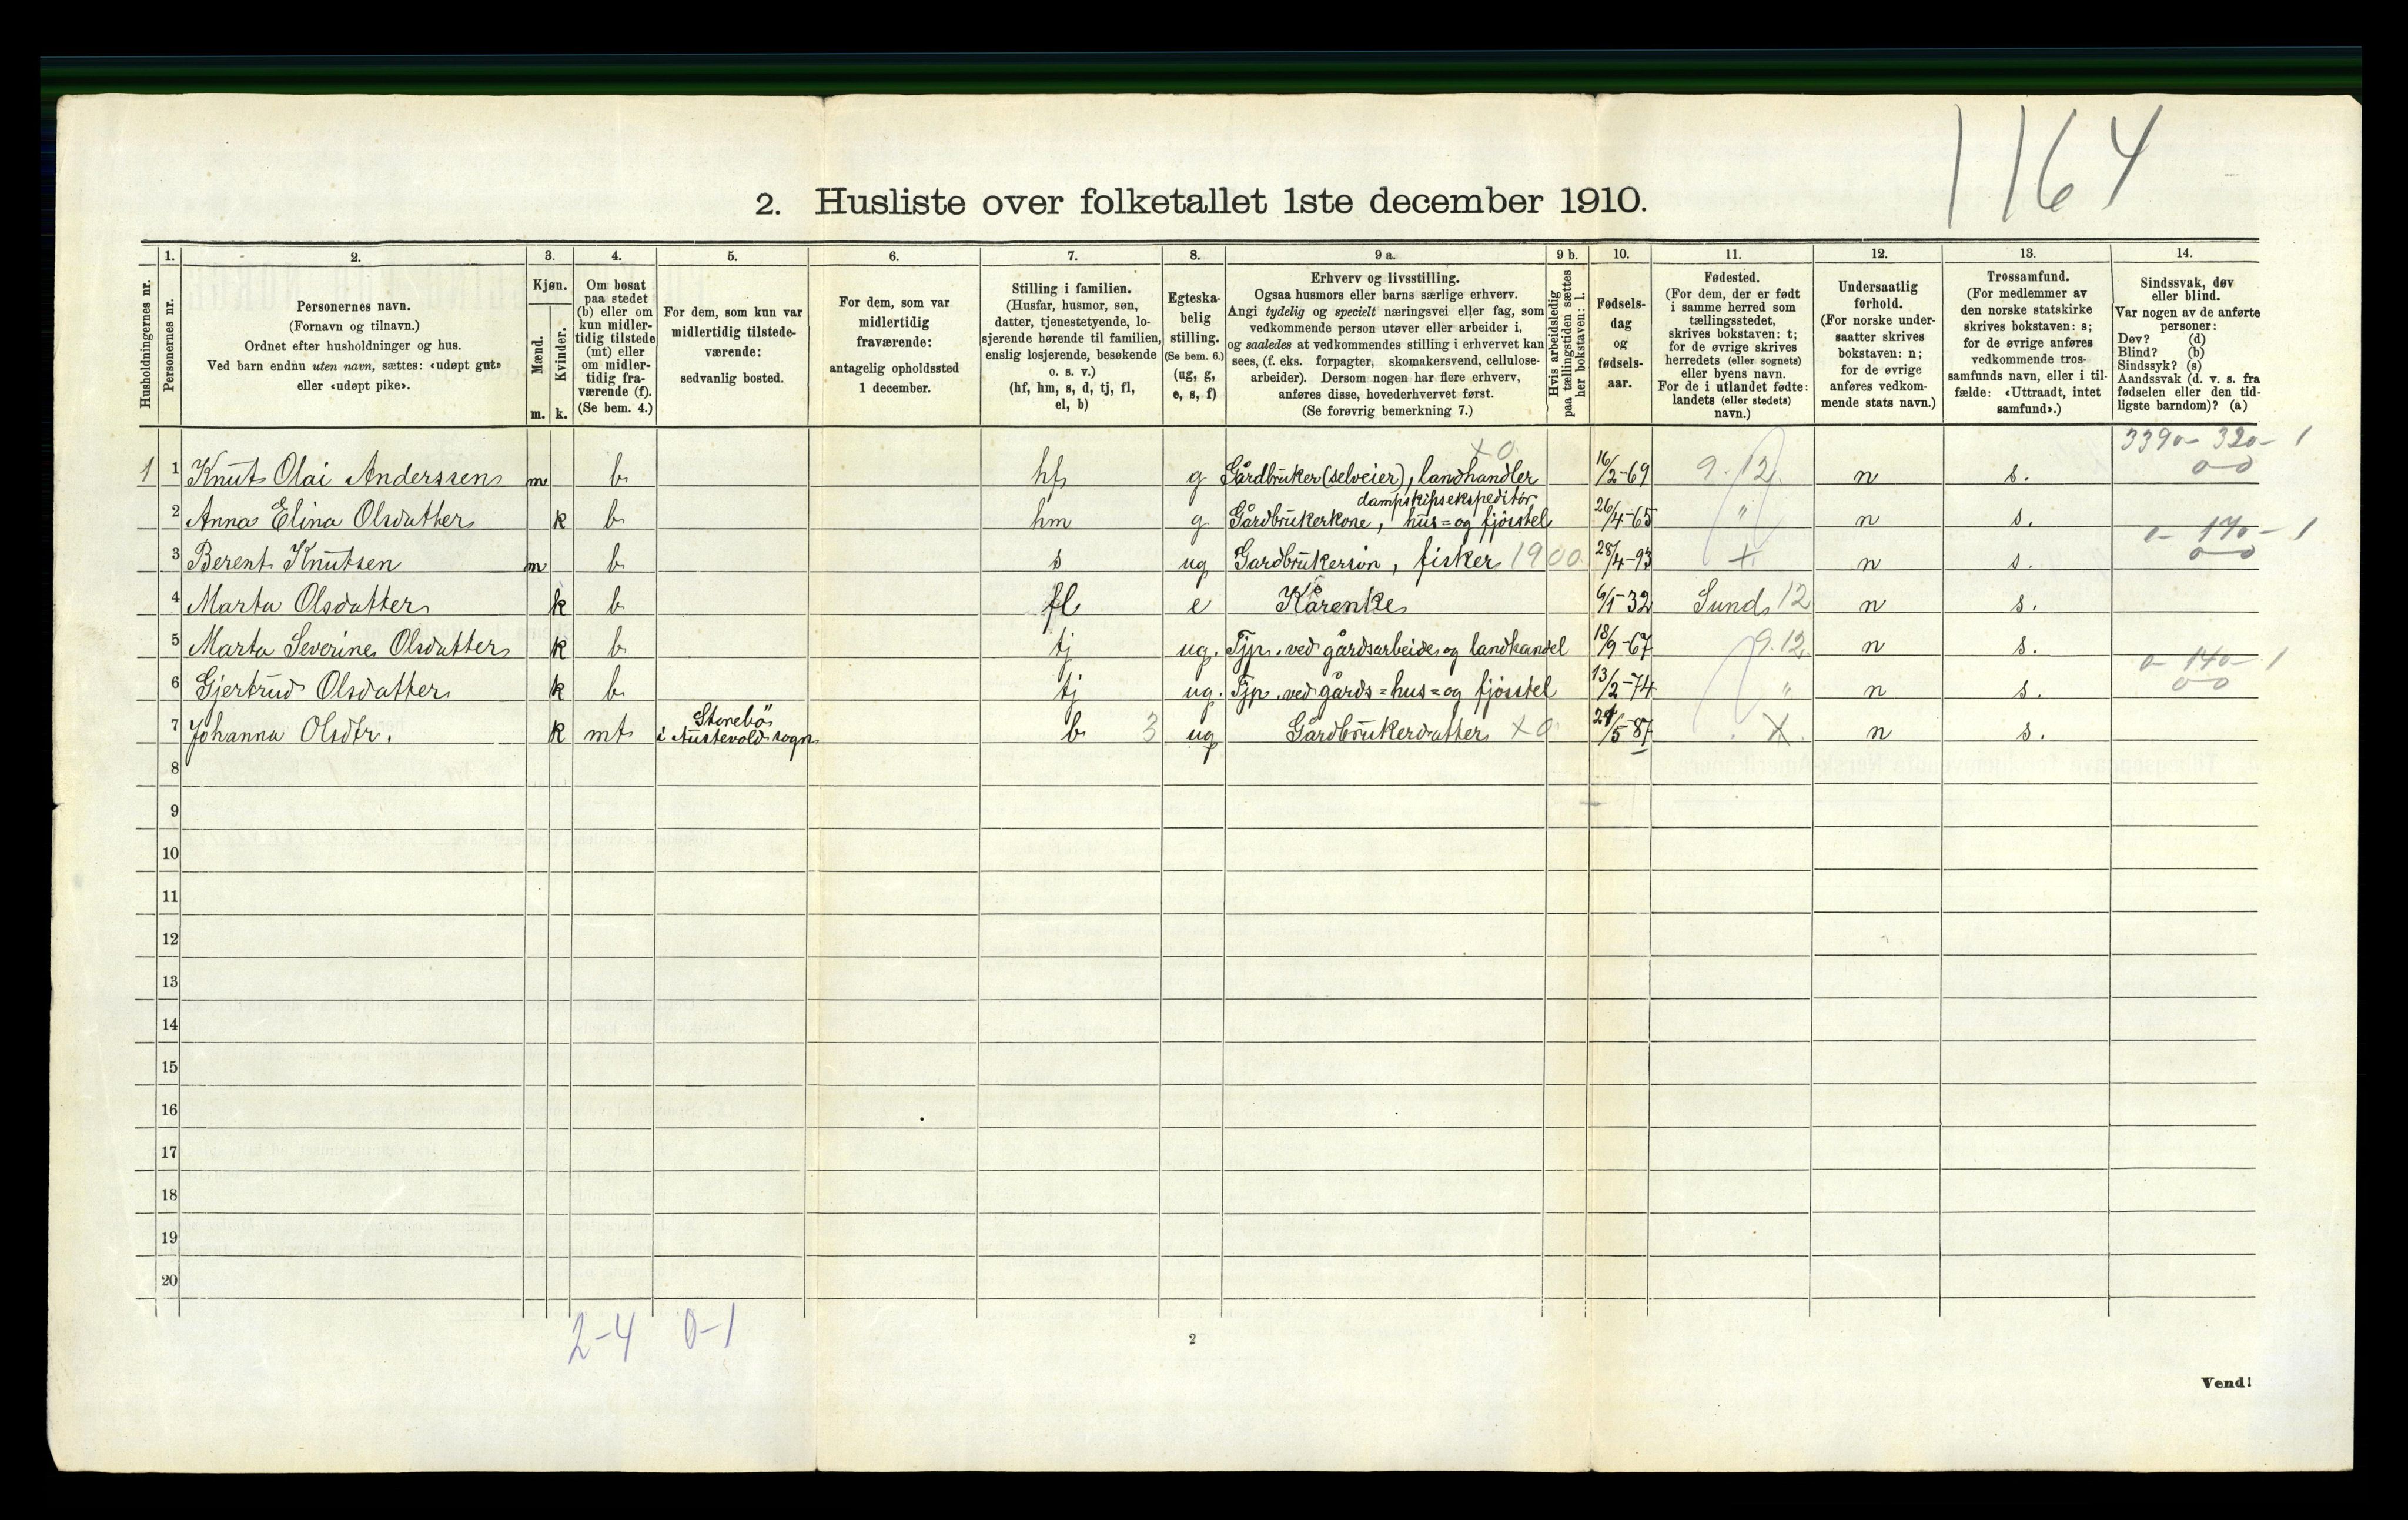 1164
2. Husliste over folketallet 1ste december 1910.
Husholdningernes nr.
1.
Personernes nr.
2.
Personernes navn.
(Fornavn og tilnavn.)
Ordnet efter husholdninger og hus.
Ved barn endnu uten navn, sættes: «udøpt gut»
eller «udøpt pike».
3.
Kjøn.
Mænd.
Kvinder.
m. k.
4.
Om bosat
paa stedet
(b) eller om
kun midler-
tidig tilstede
(mt) eller
om midler-
tidig fra-
værende (f).
(Se bem. 4.)
5.
For dem, som kun var
midlertidig tilstede-
værende:
sedvanlig bosted.
6.
For dem, som var
midlertidig
fraværende:
antagelig opholdssted
1 december.
7.
Stilling i familien.
(Husfar, husmor, søn,
datter, tjenestetyende, lo-
sjerende hørende til familien,
enslig losjerende, besøkende
o. s. v.)
(hf, hm, s, d, tj, fl,
el, b)
8.
Egteska-
belig
stilling.
(Se bem. 6.)
(ug, g,
e, s, f)
9 a.
Erhverv og livsstilling.
Ogsaa husmors eller barns særlige erhverv.
Angi tydelig og specielt næringsvei eller fag, som
vedkommende person utøver eller arbeider i,
og saaledes at vedkommendes stilling i erhvervet kan
sees, (f. eks. forpagter, skomakersvend, cellulose-
arbeider). Dersom nogen har flere erhverv,
anføres disse, hovederhvervet først.
(Se forøvrig bemerkning 7.)
9 b.
Hvis arbeidsledig
paa tællingstiden sættes
her bokstaven: l.
10.
Fødsels-
dag
og
fødsels-
aar.
11.
Fødested.
(For dem, der er født
i samme herred som
tællingsstedet,
skrives bokstaven: t;
for de øvrige skrives
herredets (eller sognets)
eller byens navn.
For de i utlandet fødte:
landets (eller stedets)
navn.)
12.
Undersaatlig
forhold.
(For norske under-
saatter skrives
bokstaven: n;
for de øvrige
anføres vedkom-
mende stats navn.)
13.
Trossamfund.
(For medlemmer av
den norske statskirke
skrives bokstaven: s;
for de øvrige anføres
vedkommende tros-
samfunds navn, eller i til-
fælde: «Uttraadt, intet
samfund».)
14.
Sindssvak, døv
eller blind.
Var nogen av de anførte
personer:
Døv? (d)
Blind? (b)
Sindssyk? (s)
Aandssvak (d. v. s. fra
fødselen eller den tid-
ligste barndom)? (a)
x 0 3390- 320- 1
1 1 Knut Olai Anderssen m b hf g Gårdbruker (selveier), landhandler 16/2-69 9.12. n s. 0-0
dampskipsekspeditör
2 Anna Elina Olsdatter k b hm g Gårdbrukerkone, hus= og fjösstel 26/4-65 " n s.
0- 170- 1
3 Berent Knutsen m b s ug Gardbrukersön, fisker 1900 28/4-93 n s. 0-0
4 Marta Olsdatter k b fl e Kårenke 6/1-32 Sund 12 n s.
5 Marta Severine Olsdatter k b tj ug. Tjp. ved gårdsarbeide og landhandel 18/9-67 9.12. n s.
0- 140- 1
6 Gjertrud Olsdatter k b tj ug. Tjp. ved gårds= hus= og fjösstel 13/2-74 " n s. 0-0
Storebö
7 Johanna Olsdtr. k mt i Austevold sogn b 3 ug Gårdbrukerdatter x 0 /5-87 n s.
8
9
10
11
12
13
14
15
16
17
18
19
20
2-4 0-1
2
Vend!